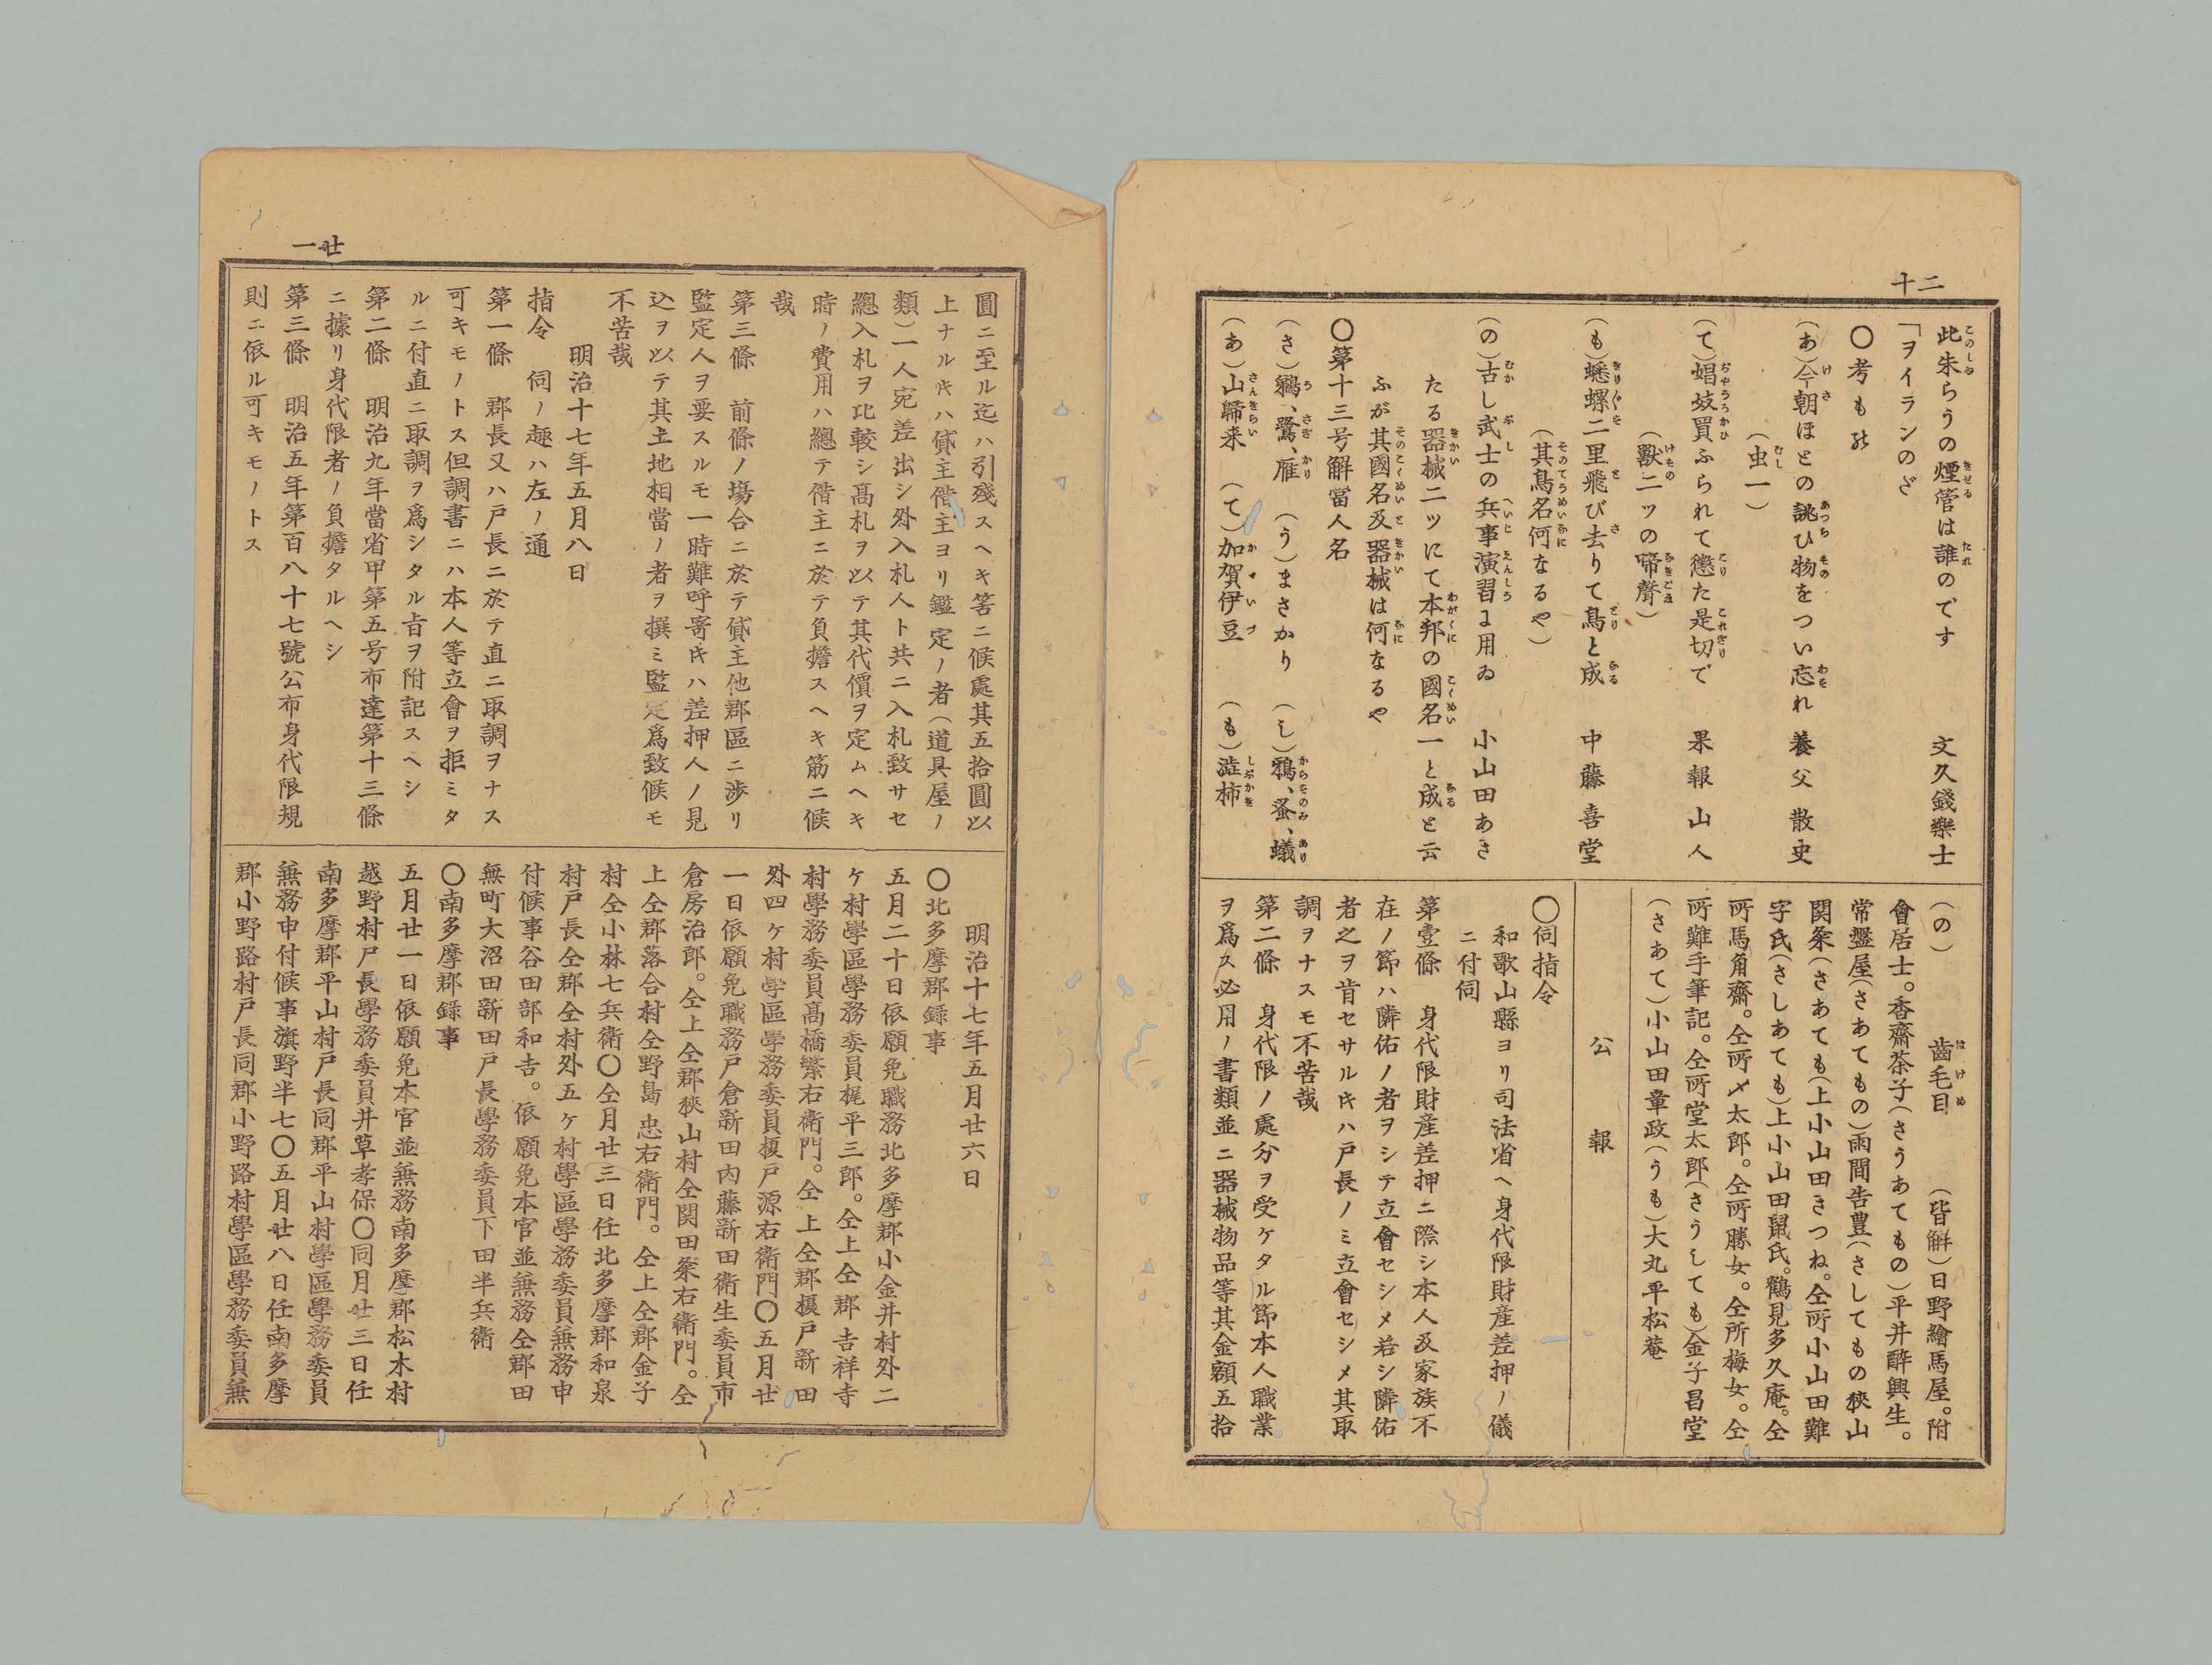 十二
此朱らうの煙管は誰のです　文久錢樂士
「ヲイランのざ
〇考もの
（あ）今朝ほとの誂ひ物をつい忘れ　養父散史
（虫一）
（て）娼妓買ふられて懲た是切で　果報山人
（獸二ツの啼聲）
（も）蟋螺二里飛び去りて鳥と成　中藤喜堂
（其鳥名何なるや）
（の）古し武士の兵事演習に用ゐ　小山田あさ
たる器械二ツにて本邦の國名一と成と云
ふが其國名及と器械は何なるや
〇第十三号解當人名
（さ）鵜、鷺、雁　（う）まさかり　（し）鴉、蚤、蟻
（あ）山歸来　（て）加賀伊豆　（も）澁柿
（の）　齒毛目　（皆解）日野繪馬屋。附
會居士。香齋茶子（さうあてもの）平井醉興生。
常盤屋（さあてもの）雨間告豊（さしてもの狹山
関粂（さあても（上小山田きつね。仝所小山田難
字氏（さしあても）上小山田鼠氏。鶴見多久庵。仝
所馬角齋。仝所〆太郎。仝所勝女。仝所梅女。仝
所難手筆記。仝所堂太郎（さうしても）金子昌堂
（さあて）小山田章政（うも）大丸平松菴
公報
〇伺指令
和歌山縣ヨリ司法省ヘ身代限財産差押ノ儀
ニ付伺
第壹條　身代限財産差押ニ際シ本人及家族不
在ノ節ハ隣佑ノ者ヲシテ立會セシメ若シ隣佑
者之ヲ肯セサルキハ戸長ノミ立會セシメ其取
調ヲナスモ不苦哉
第二條　身代限ノ處分ヲ受ケタル節本人職業
ヲ爲ス必用ノ書類並ニ器械物品等其金額五拾
一廿
圓ニ至ル迄ハ引殘スヘキ筈ニ候處其五拾圓以
上ナルキハ貸主借主ヨリ鑑定ノ者（道具屋ノ
類）一人宛差出シ外入札人ト共ニ入札致サセ
總入札ヲ比較シ高札ヲ以テ其代價ヲ定ムヘキ
時ノ費用ハ總テ借主ニ於テ負擔スヘキ筋ニ候
哉
第三條　前條ノ塲合ニ於テ貸主他郡區ニ渉リ
監定人ヲ要スルモ一時難呼寄キハ差押人ノ見
込ヲ以テ其土地相當ノ者ヲ撰ミ監定爲致候モ
不苦哉
明治十七年五月八日
指令　伺ノ趣ハ左ノ通
第一條　郡長又ハ戸長ニ於テ直ニ取調ヲナス
可キモノトス但調書ニハ本人等立會ヲ拒ミタ
ルニ付直ニ取調ヲ爲シタル旨ヲ附記スヘシ
第二條　明治九年當省甲第五号布達第十三條
ニ據リ身代限者ノ負擔タルヘシ
第三條　明治五年第百八十七號公布身代限規
則ニ依ル可キモノトス
明治十七年五月廿六日
〇北多摩郡録事
五月二十日依願免職務北多摩郡小金井村外二
ケ村學區學務委員梶平三郎。仝上仝郡吉祥寺
村學務委員高橋繁右衛門。仝上仝郡榎戸新田
外四ケ村學區學務委員榎戸源右衛門〇五月廿
一日依願免職務戸倉新田内藤新田衛生委員市
倉房治郎。仝上仝郡狹山村仝関田粂右衛門。仝
上仝郡落合村仝野島忠右衛門。仝上仝郡金子
村仝小林七兵衛〇仝月廿三日任北多摩郡和泉
村戸長仝郡仝村外五ケ村學區學務委員兼務申
付候事谷田部和吉。依願免本官並兼務仝郡田
無町大沼田新田戸長學務委員下田半兵衛
〇南多摩郡録事
五月廿一日依願免本官並兼務南多摩郡松木村
越野村戸長學務委員井草孝保〇同月廿三日任
南多摩郡平山村戸長同郡平山村學區學務委員
兼務申付候事旗野半七〇五月廿八日任南多摩
郡小野路村戸長同郡小野路村學區學務委員兼